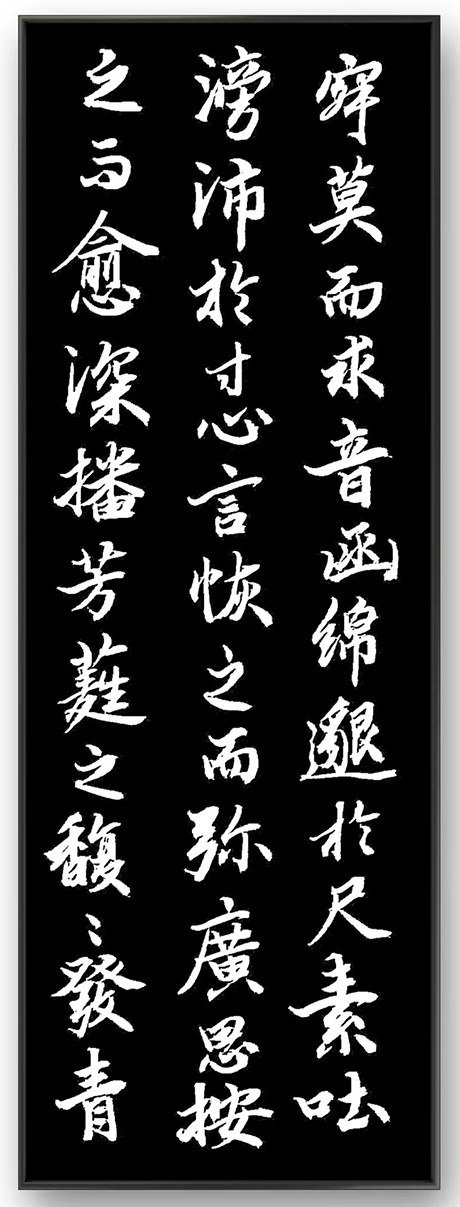 寂寞而求音函綿邈於尺素吐
滂沛於寸心言恢之而弥廣思按
之而愈深播芳蕤之馥〻發青